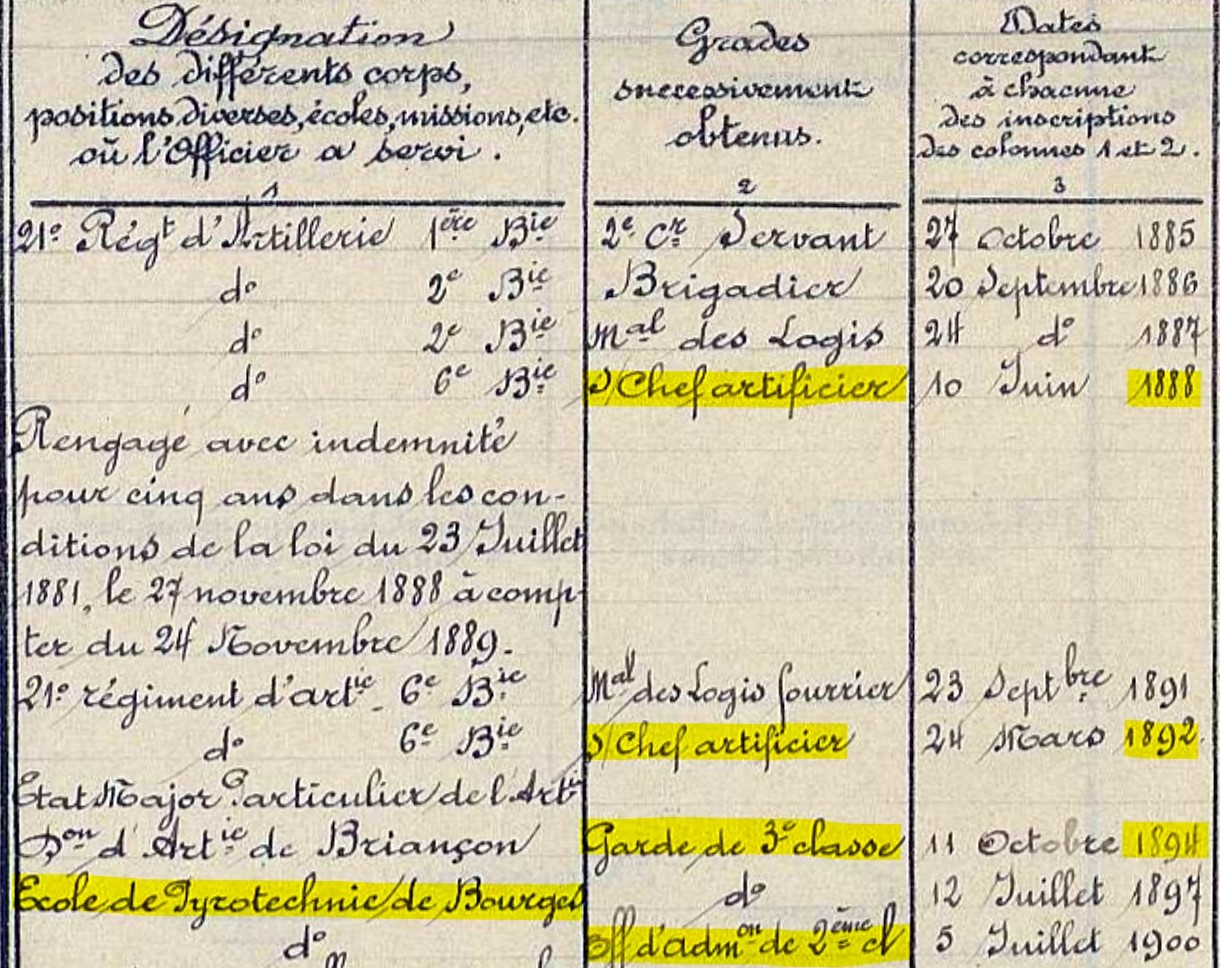 Désignation
des différents corps,
positions diverses, écoles, missions, etc.
où l'Officier a servi.
1
Grades
successivement
obtenus.
2
Dates
correspondant
à chacune
des inscriptions
des colonnes 1 et 2.
3
21e Régt d'Artillerie 1ère Bie 2e Cr Servant 27 Octobre 1885
do 2e Bie Brigadier 20 Septembre 1886
do 2e Bie Mal des Logis 24 do 1887
do 6e Bie s/Chef artificier 10 Juin 1888
Rengagé avec indemnité
pour cinq ans dans les con-
ditions de la loi du 23 Juillet
1881, le 27 novembre 1888 à comp-
ter du 24 Novembre 1889.
21e régiment d'artie 6e Bie Mal des Logis fourrier 23 Septbre 1891
do 6e Bie s/Chef artificier 24 Mars 1892.
Etat Major Particulier de l'Artie
Don d'Artie de Briançon Garde de 3e classe 11 Octobre 1894
Ecole de Pyrotechnie de Bourges do 12 Juillet 1897
do Off d'admon de 2ème cl 5 Juillet 1900